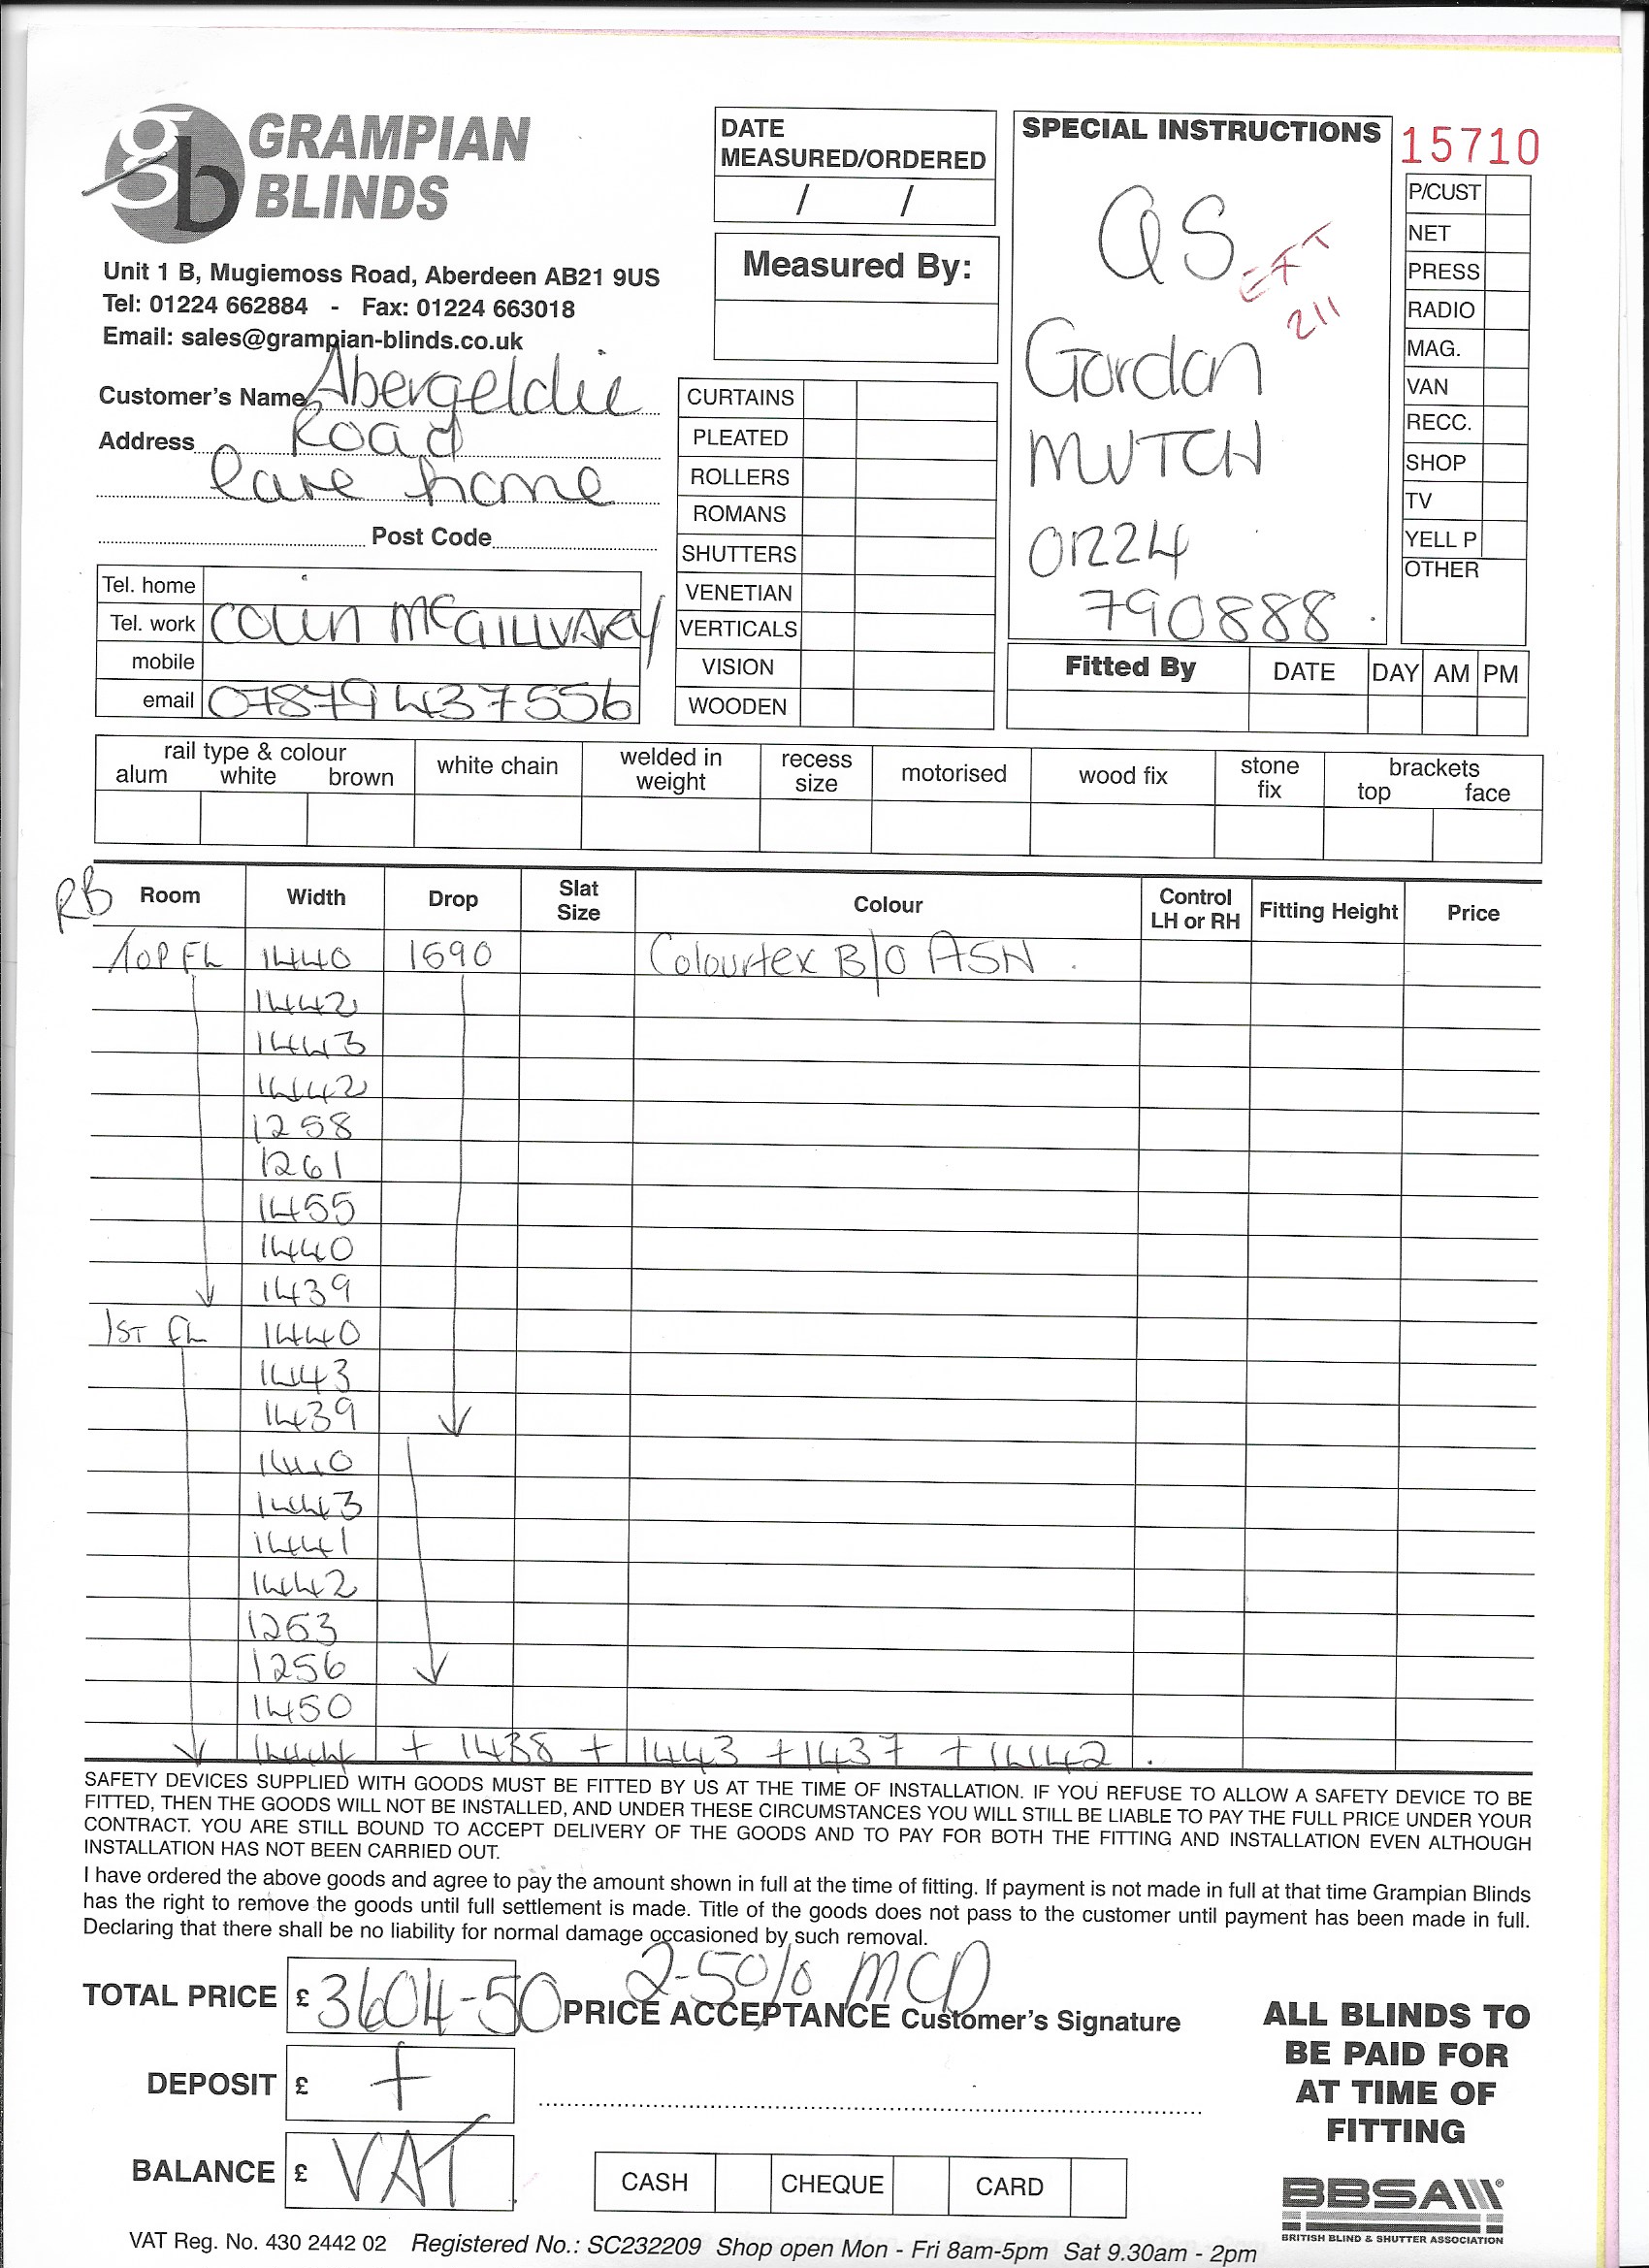 gb GRAMPIAN
BLINDS
Unit 1 B, Mugiemoss Road, Aberdeen AB21 9US
Tel: 01224 662884 - Fax: 01224 663018
Email: sales@grampian-blinds.co.uk
Customer's Name Abergeldie
Address Road
Care home
Post Code
Tel. home
Tel. work COLIN McGILLIVRAY
mobile
email 07879437556
DATE
MEASURED/ORDERED
/ /
Measured By:
CURTAINS
PLEATED
ROLLERS
ROMANS
SHUTTERS
VENETIAN
VERTICALS
VISION
WOODEN
SPECIAL INSTRUCTIONS
QS
EXT
211
Gordon
MUTCH
01224
790888
15710
P/CUST
NET
PRESS
RADIO
MAG.
VAN
RECC.
SHOP
TV
YELL P
OTHER
Fitted By DATE DAY AM PM
rail type & colour
alum white brown
white chain
welded in
weight
recess
size
motorised
wood fix
stone
fix
brackets
top face
RB Room Width Drop Slat Size Colour Control LH or RH Fitting Height Price
TOP FL 1440 1590 Colourtex B/O ASH
1442
1443
1442
1258
1261
1455
1440
1439
1ST FL 1440
1443
1439
1440
1443
1441
1442
1253
1256
1450
1444 + 1438 + 1443 + 1437 + 1442
SAFETY DEVICES SUPPLIED WITH GOODS MUST BE FITTED BY US AT THE TIME OF INSTALLATION. IF YOU REFUSE TO ALLOW A SAFETY DEVICE TO BE
FITTED, THEN THE GOODS WILL NOT BE INSTALLED, AND UNDER THESE CIRCUMSTANCES YOU WILL STILL BE LIABLE TO PAY THE FULL PRICE UNDER YOUR
CONTRACT. YOU ARE STILL BOUND TO ACCEPT DELIVERY OF THE GOODS AND TO PAY FOR BOTH THE FITTING AND INSTALLATION EVEN ALTHOUGH
INSTALLATION HAS NOT BEEN CARRIED OUT.
I have ordered the above goods and agree to pay the amount shown in full at the time of fitting. If payment is not made in full at that time Grampian Blinds
has the right to remove the goods until full settlement is made. Title of the goods does not pass to the customer until payment has been made in full.
Declaring that there shall be no liability for normal damage occasioned by such removal.
2-50% MCD
TOTAL PRICE £ 3604-50 PRICE ACCEPTANCE Customer's Signature
DEPOSIT £ +
BALANCE £ VAT
CASH CHEQUE CARD
ALL BLINDS TO
BE PAID FOR
AT TIME OF
FITTING
BBSA
BRITISH BLIND & SHUTTER ASSOCIATION
VAT Reg. No. 430 2442 02 Registered No.: SC232209 Shop open Mon - Fri 8am-5pm Sat 9.30am - 2pm